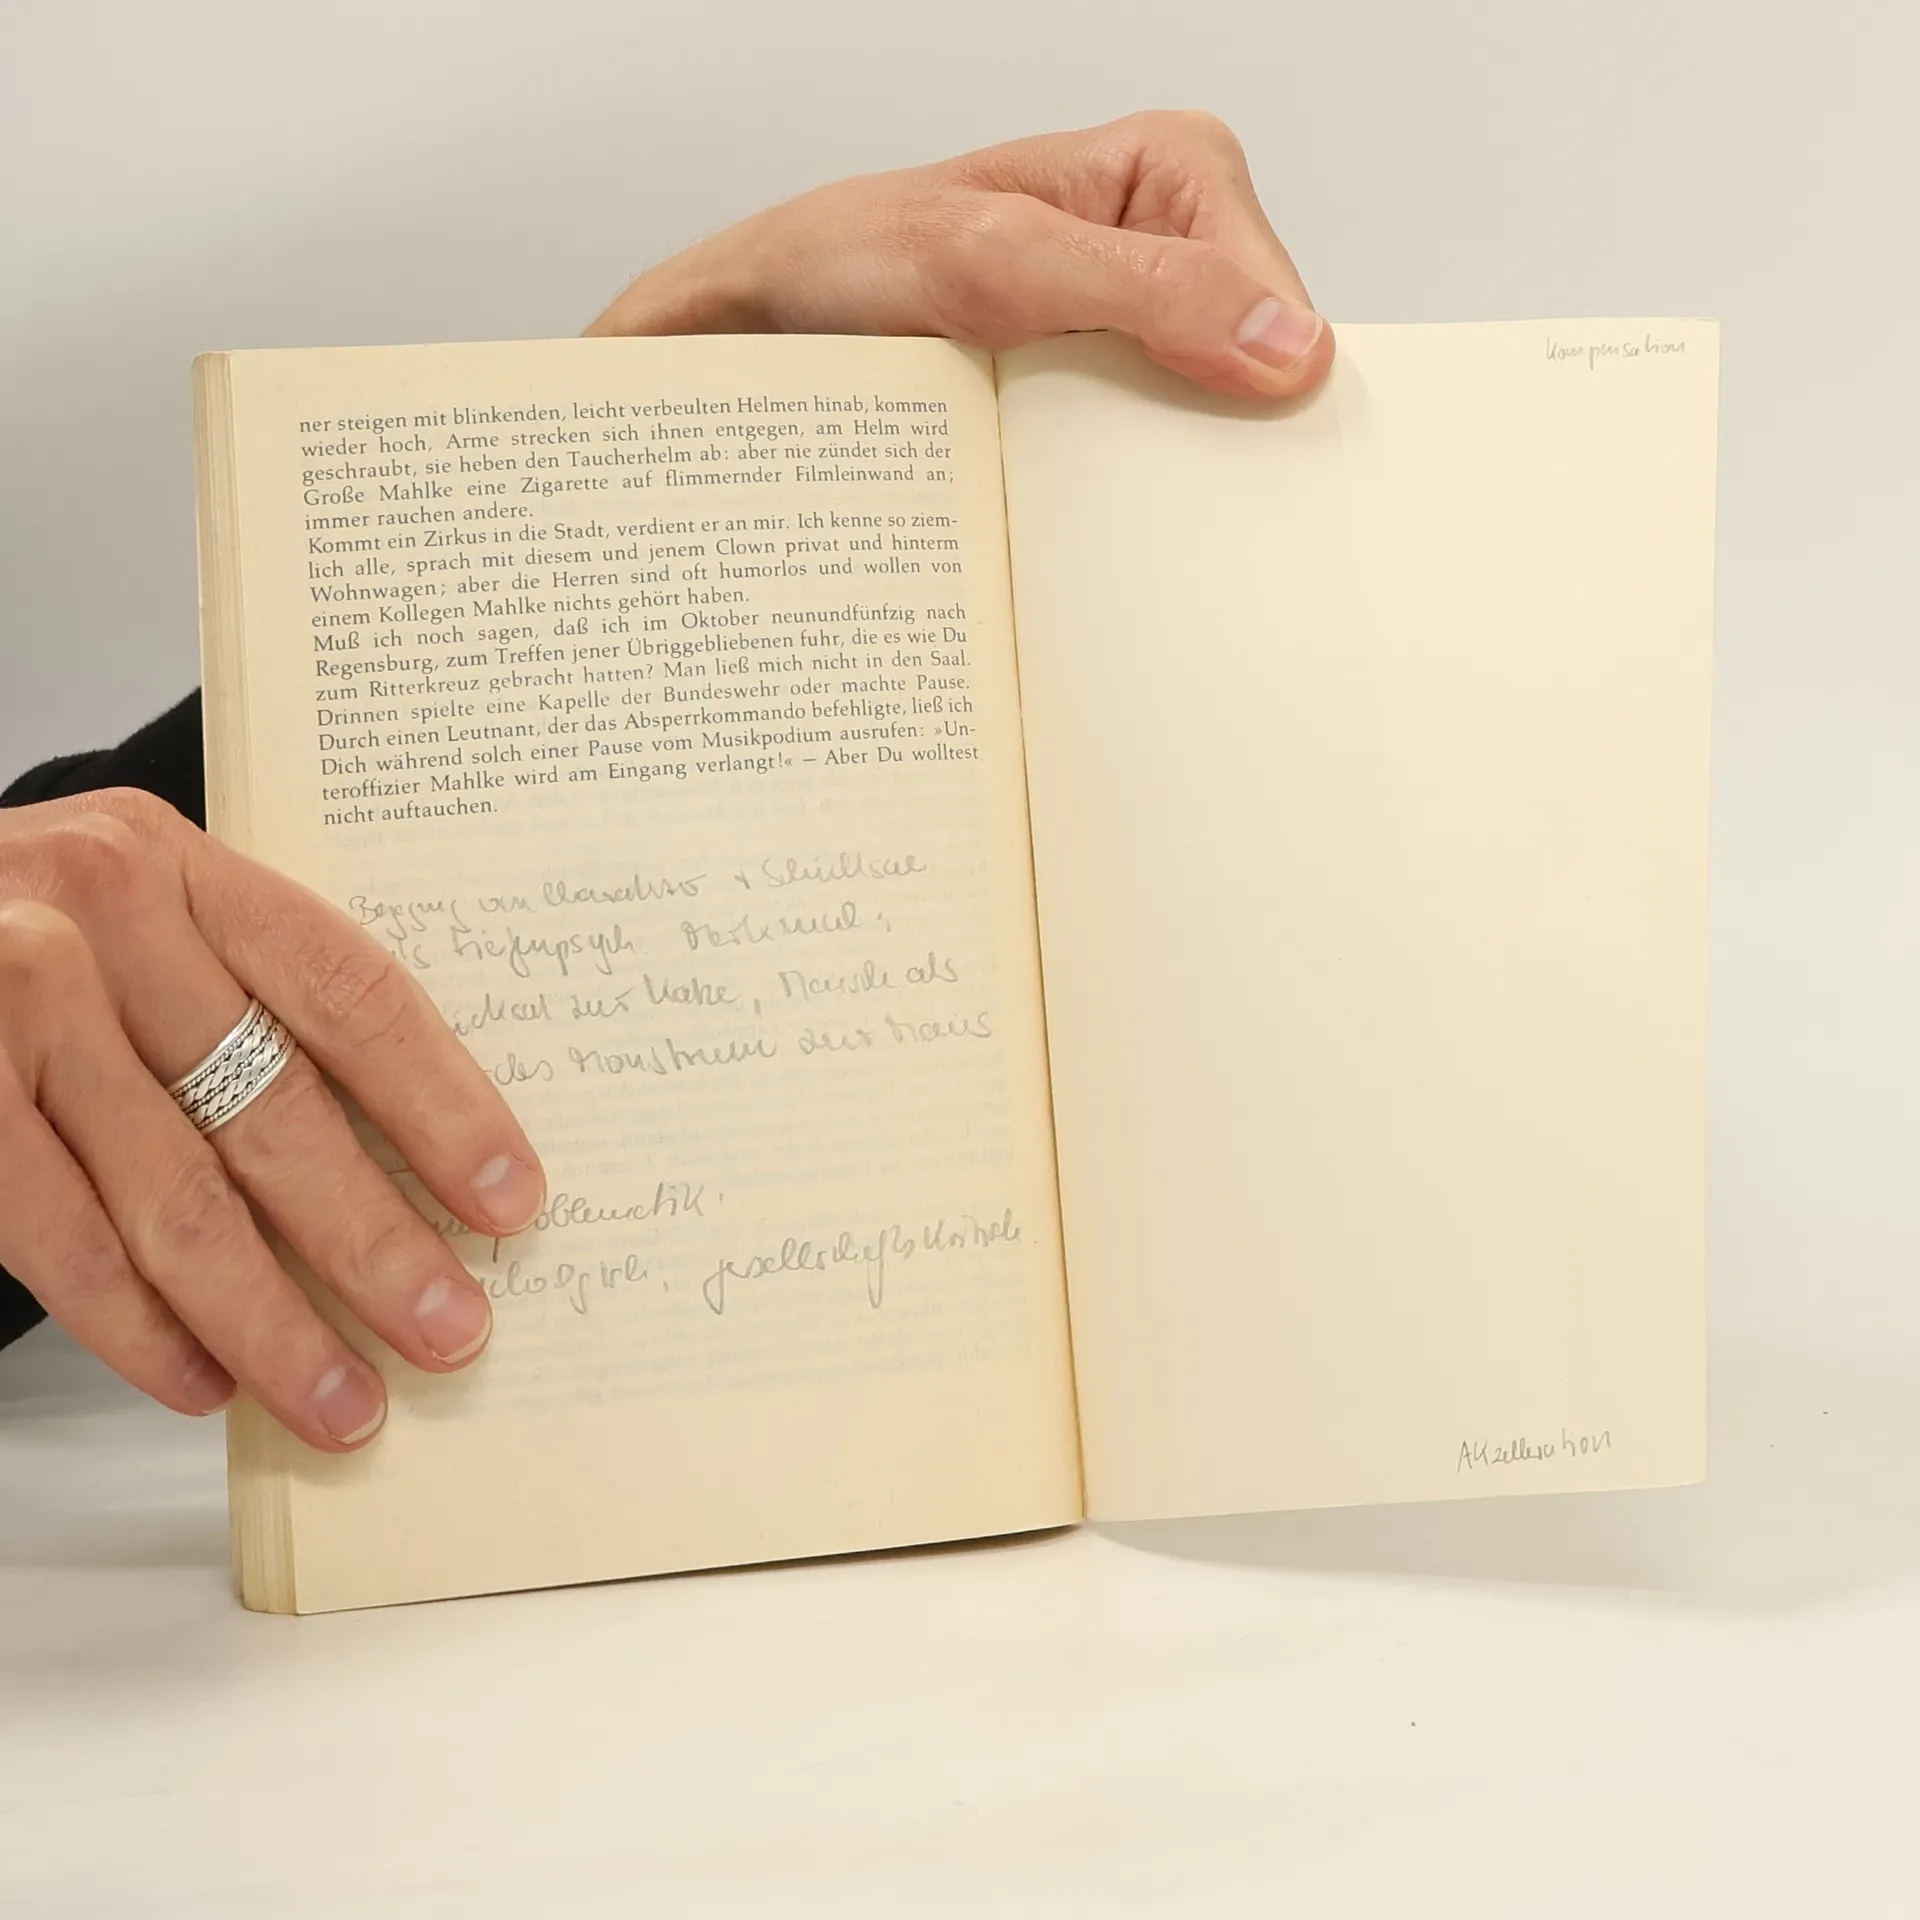 ner steigen mit blinkenden, leicht verbeulten Helmen hinab, kommen
wieder hoch, Arme strecken sich ihnen entgegen, am Helm wird
geschraubt, sie heben den Taucherhelm ab: aber nie zündet sich der
Große Mahlke eine Zigarette auf flimmernder Filmleinwand an;
immer rauchen andere.
Kommt ein Zirkus in die Stadt, verdient er an mir. Ich kenne so ziem-
lich alle, sprach mit diesem und jenem Clown privat und hinterm
Wohnwagen; aber die Herren sind oft humorlos und wollen von
einem Kollegen Mahlke nichts gehört haben.
Muß ich noch sagen, daß ich im Oktober neunundfünfzig nach
Regensburg, zum Treffen jener Übriggebliebenen fuhr, die es wie Du
zum Ritterkreuz gebracht hatten? Man ließ mich nicht in den Saal.
Drinnen spielte eine Kapelle der Bundeswehr oder machte Pause.
Durch einen Leutnant, der das Absperrkommando befehligte, ließ ich
Dich während solch einer Pause vom Musikpodium ausrufen: »Un-
teroffizier Mahlke wird am Eingang verlangt!« – Aber Du wolltest
nicht auftauchen.
von + Schicksal
tiefenpsych Merkmal;
zur Katze, Mensch als
des Monstrum zur Maus
oblematik.
gesellschaftskritisch
Kompensation
Akzelleration